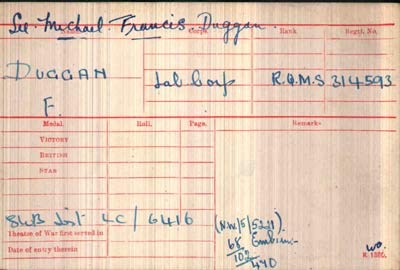 See Michael Francis Duggan.
Name. Corps. Rank Regtl. No.
DUGGAN Lab Corp R.Q.M.S 314593
F.
Medal. Roll. Page. Remarks
VICTORY
BRITISH
STAR
SWB List LC/6416 (N.W/5/5221).
Theatre of War first served in
Date of entry therein
68
102
470
K 1380.